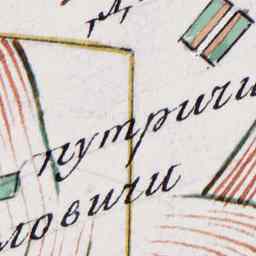 путричи
ловичи